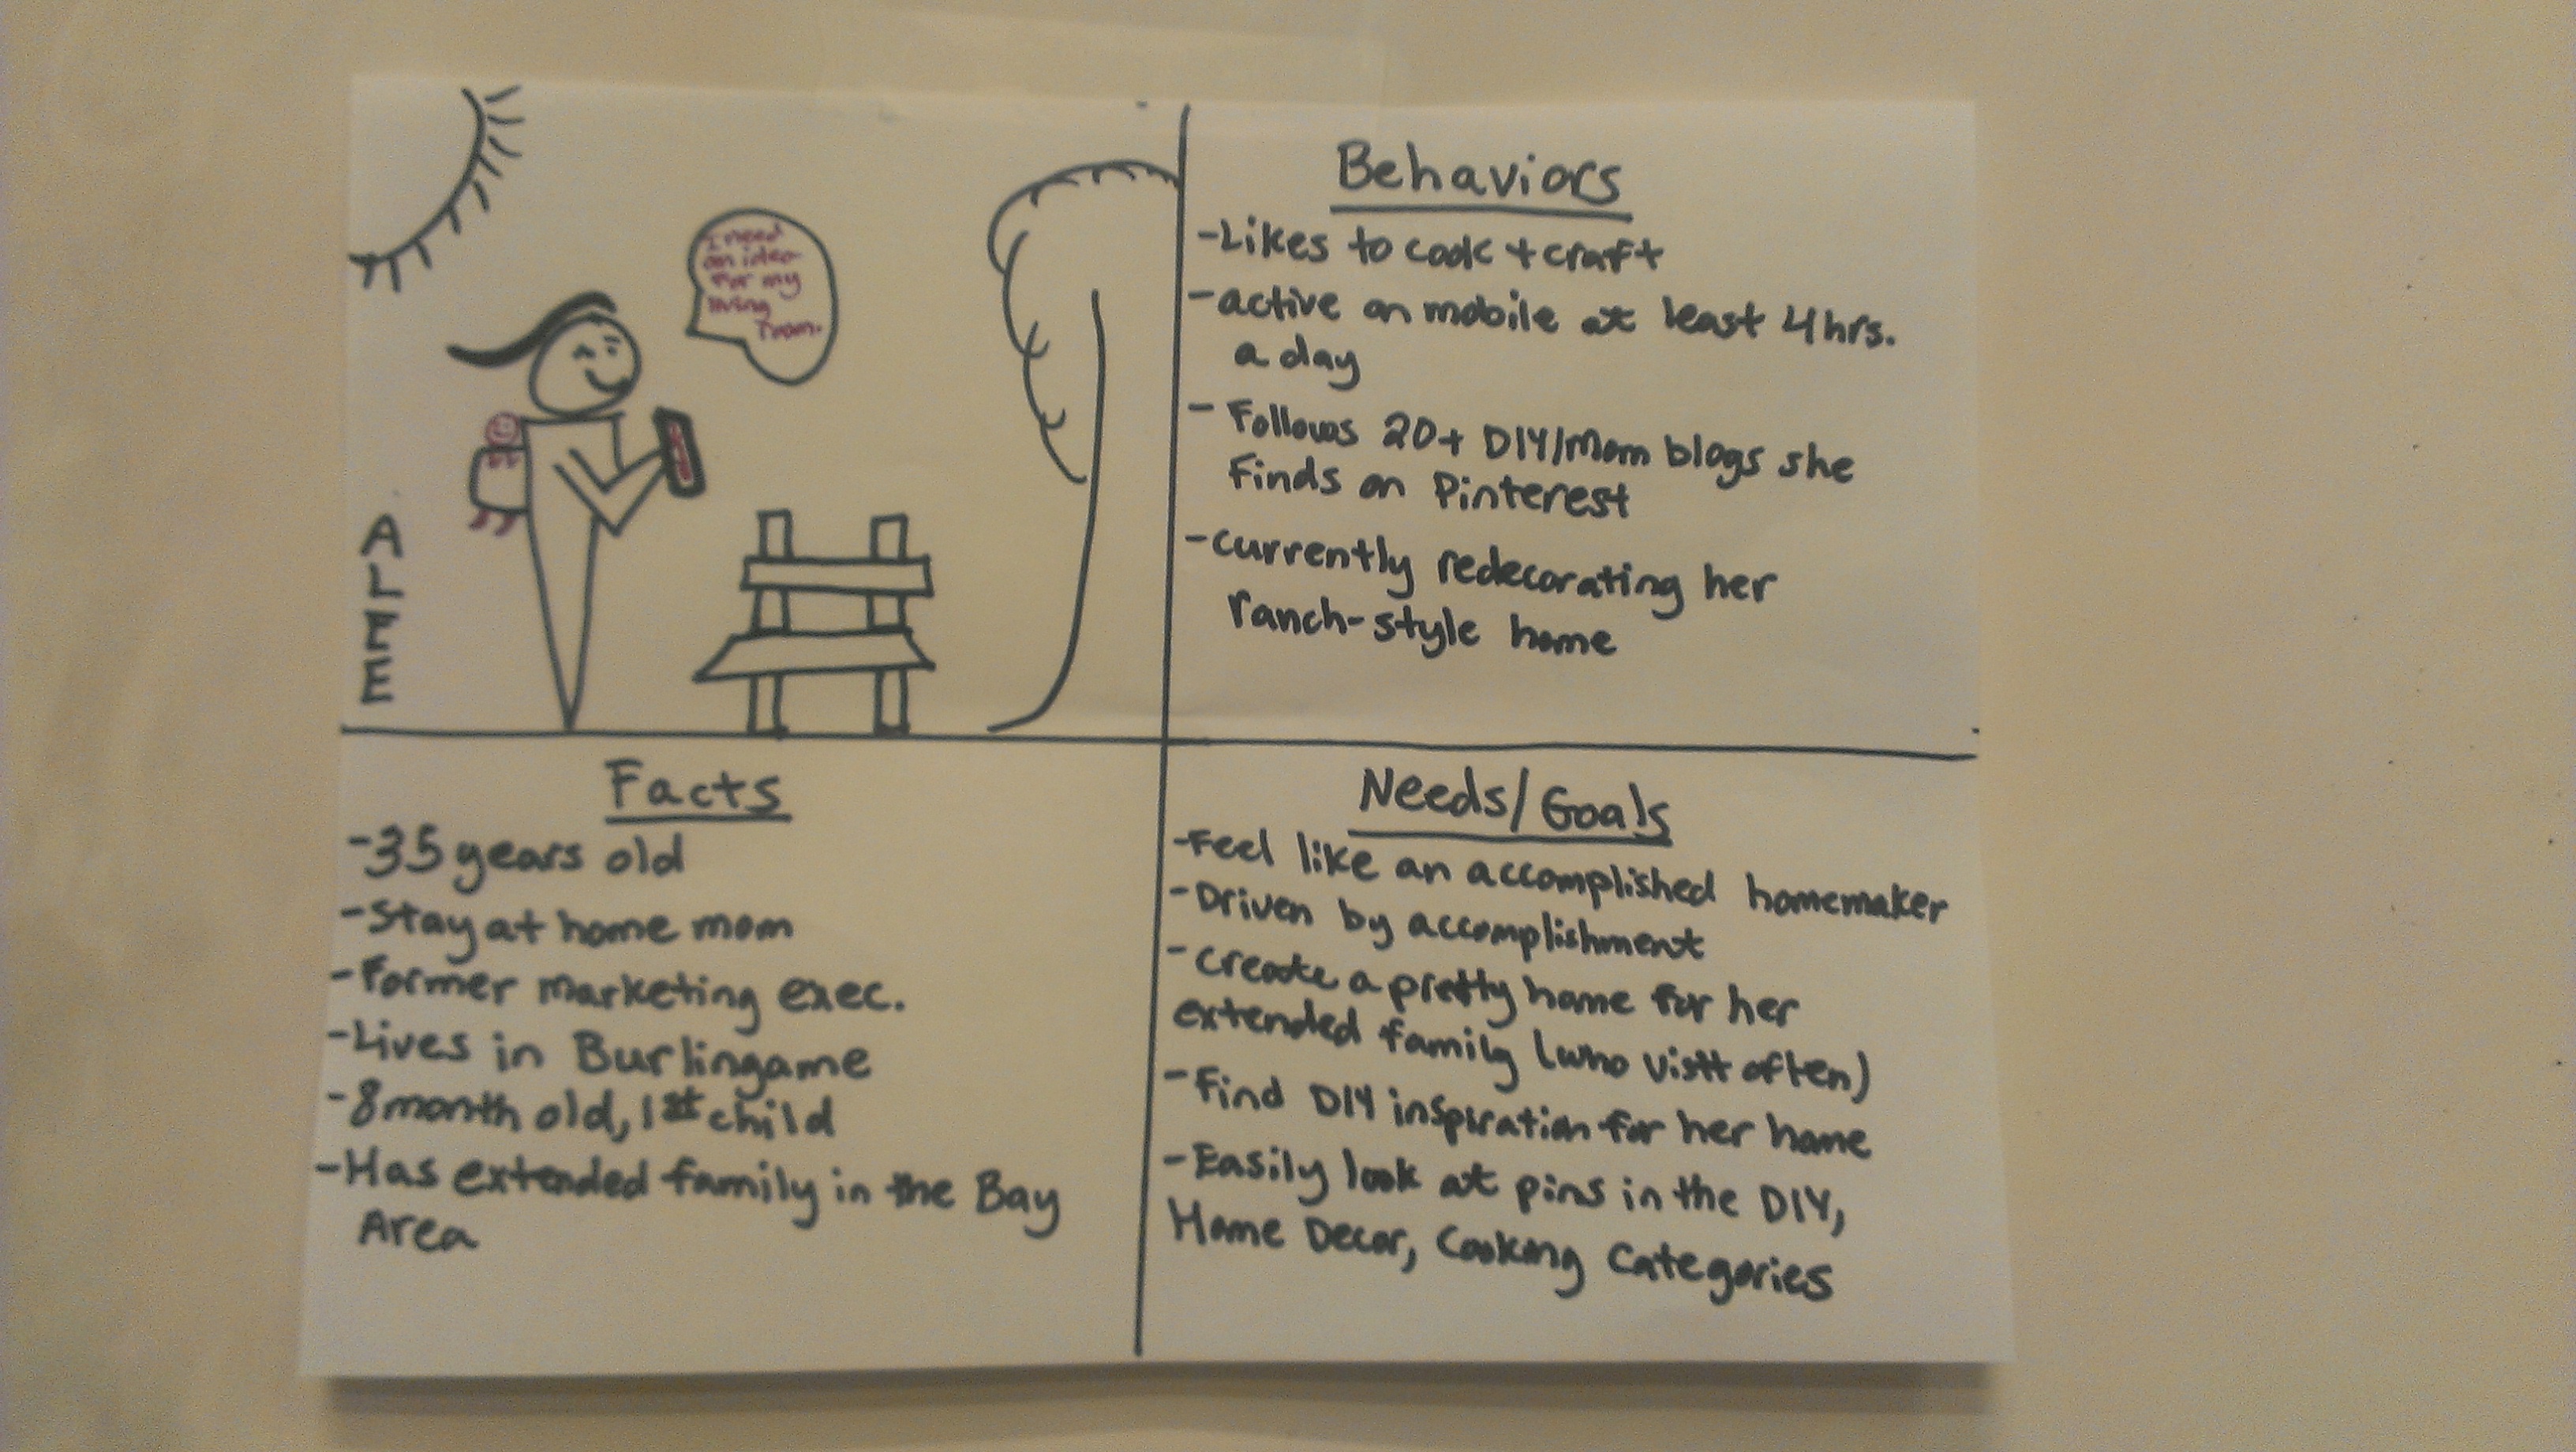 I need
an idea
for my
living
room.
ALEE
Behaviors
-Likes to cook + craft
-active on mobile at least 4hrs.
a day
- Follows 20+ DIY/Mom blogs she
finds on Pinterest
-currently redecorating her
ranch-style home
Facts
-35 years old
-Stay at home mom
-Former marketing exec.
-Lives in Burlingame
-8month old, 1st child
-Has extended family in the Bay
Area
Needs/Goals
-Feel like an accomplished homemaker
-Driven by accomplishment
-create a pretty home for her
extended family (who visit often)
-Find DIY inspiration for her home
-Easily look at pins in the DIY,
Home Decor, Cooking Categories